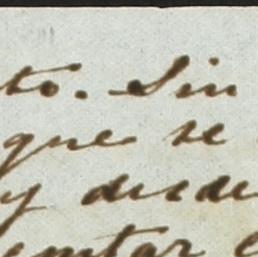 to. Sin
que se
y desde
entar e